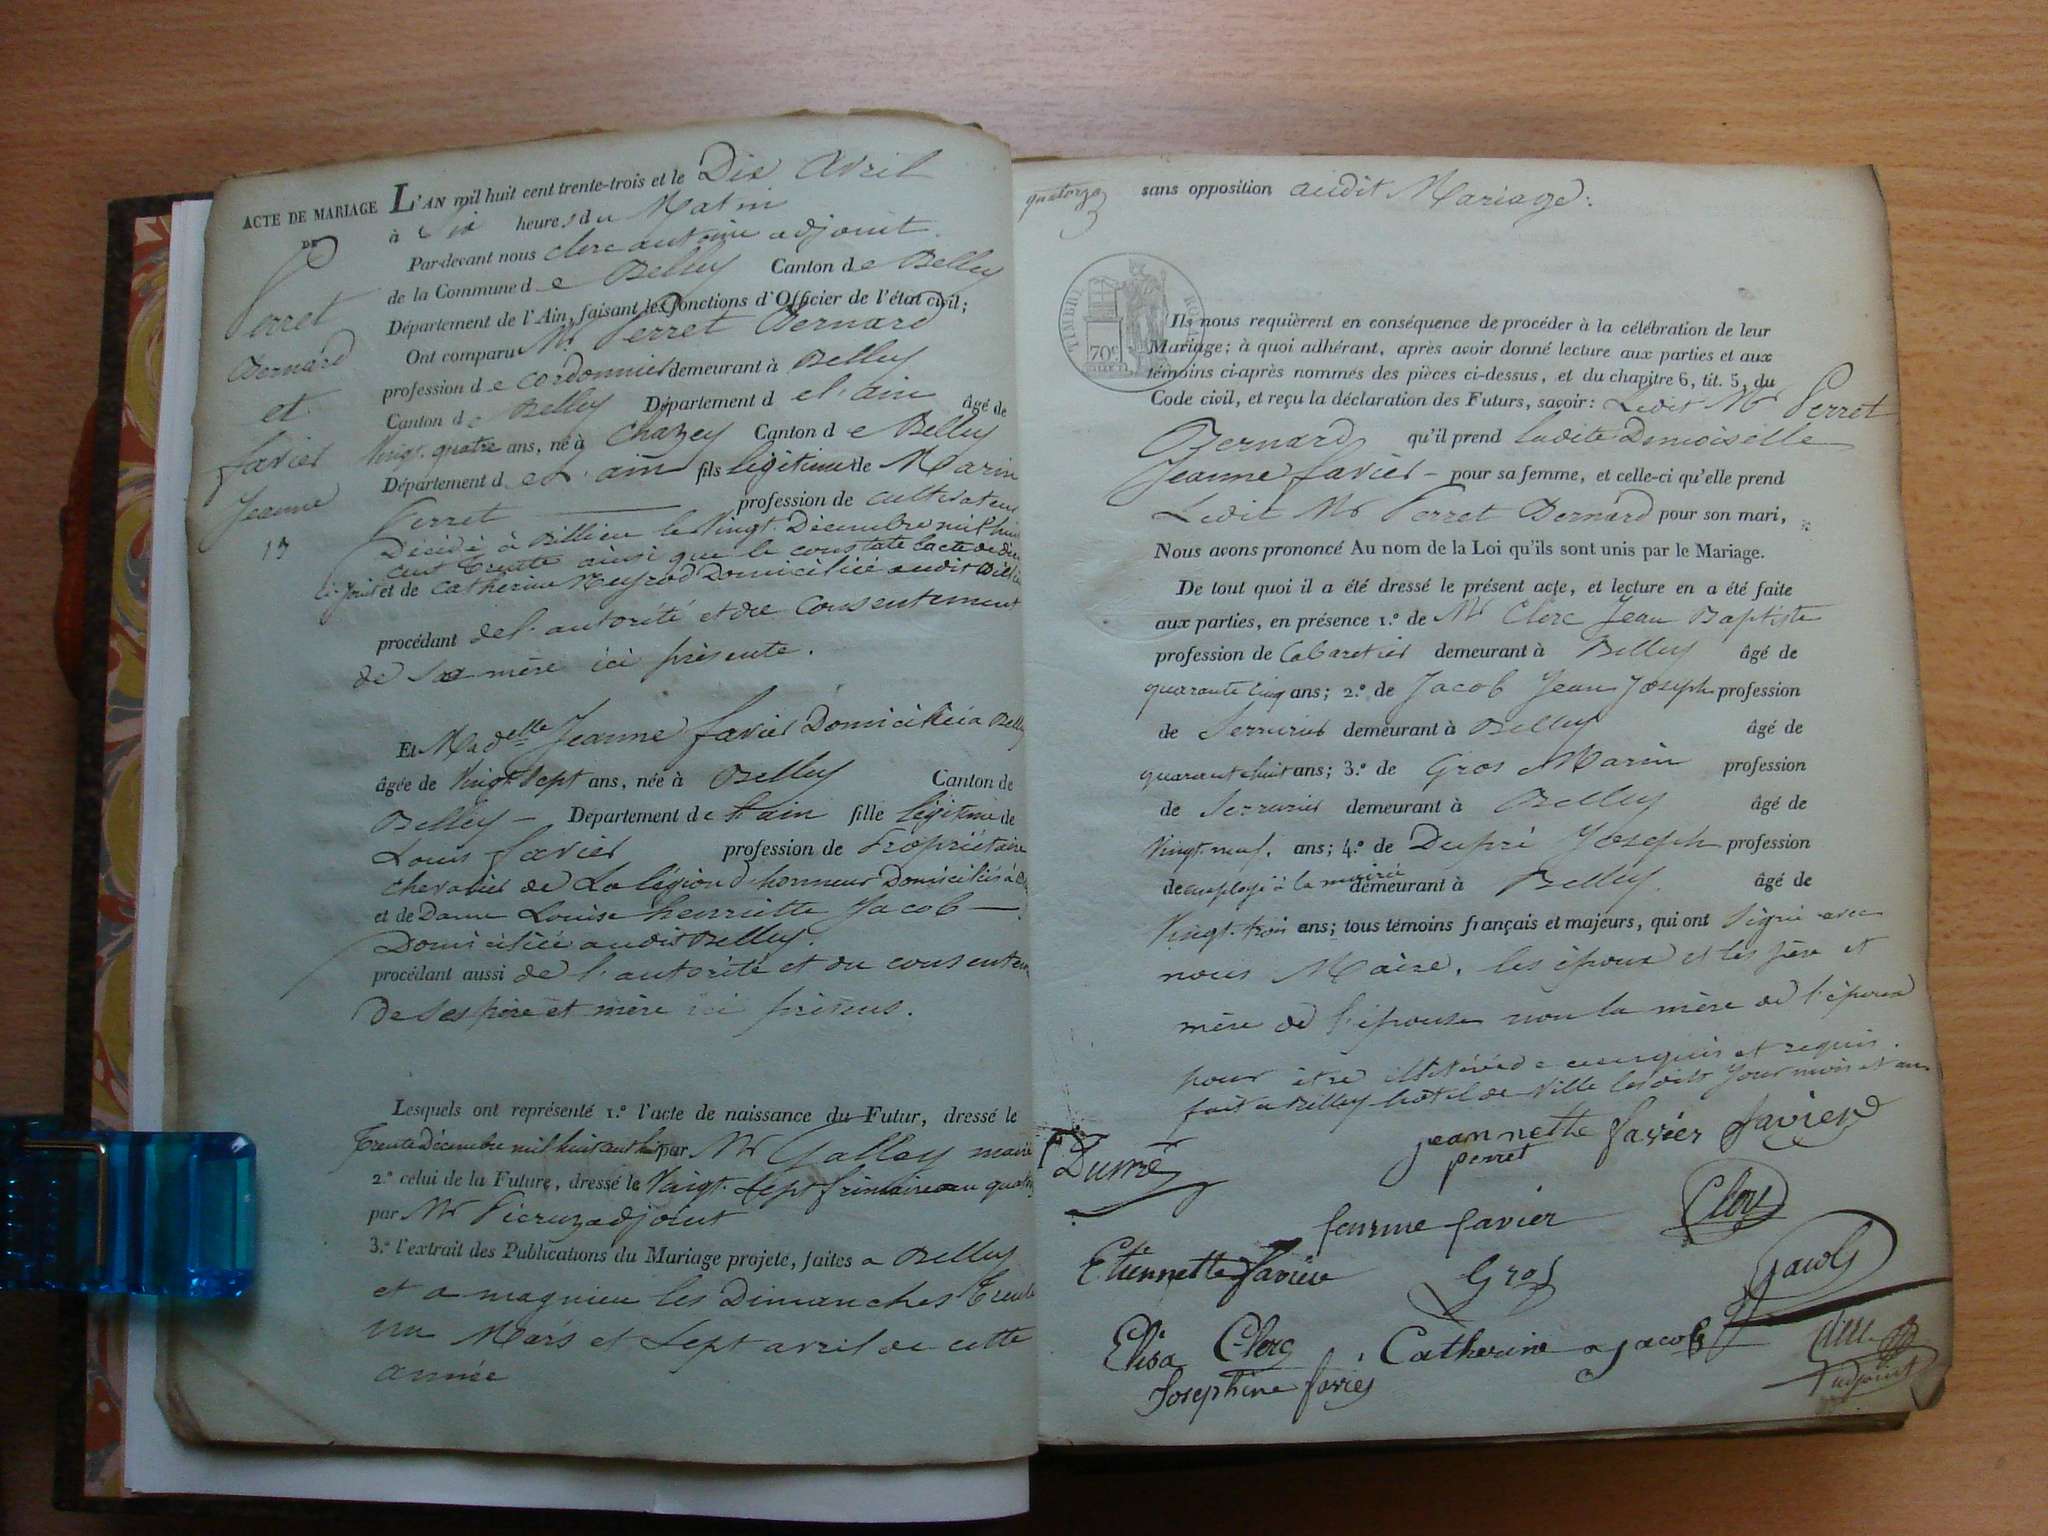 ACTE DE MARIAGE
DE
Perret
Bernard
et
favier
Jeanne
13
L'AN mil huit cent trente-trois et le Dix avril
à Six heures du Matin
Par-devant nous Clerc antoine adjoint
de la Commune de Belley Canton de Belley
Département de l'Ain, faisant les fonctions d'Officier de l'état civil;
Ont comparu Mr Perret Bernard
profession de cordonnier demeurant à Belley
Canton de Belley Département de l'ain âgé de
Vingt-quatre ans, né à Chazey Canton de Belley
Département de l'ain fils légitime de Marin
Perret profession de cultivateur
Décédé à Billieu le Vingt Décembre mil huit
cent trente ainsi que le constate l'acte de
ci-joint et de Catherine Domiciliée audit
procédant de l'autorité et du Consentement
de sa mère ici présente.
Et Madelle Jeanne favier Domiciliée à Belley
âgée de Vingt Sept ans, née à Belley Canton de
Belley — Département de l'ain fille légitime de
Louis favier profession de Propriétaire
chevalier de La légion d'honneur Domicilié à
et de Dame Louise henriette Jacob —
Domiciliée audit Belley.
procédant aussi de l'autorité et du consentement
De Ses père et mère ici présens.
Lesquels ont représenté 1.º l'acte de naissance du Futur, dressé le
trente Décembre mil huit cent huit par Mr Galley maire
2.º celui de la Future, dressé le Vingt-Sept frimaire an
par Mr adjoint
3.º l'extrait des Publications du Mariage projeté, faites à Belley
et a magnieu les Dimanches trente
un Mars et Sept avril de cette
année
quatorze
sans opposition audit Mariage.
TIMBRE ROYAL
70c
Ils nous requièrent en conséquence de procéder à la célébration de leur
Mariage; à quoi adhérant, après avoir donné lecture aux parties et aux
témoins ci-après nommés des pièces ci-dessus, et du chapitre 6, tit. 5, du
Code civil, et reçu la déclaration des Futurs, savoir: Ledit Mr Perret
Bernard qu'il prend ladite Demoiselle
Jeanne favier — pour sa femme, et celle-ci qu'elle prend
Ledit Mr Perret Bernard pour son mari,
Nous avons prononcé Au nom de la Loi qu'ils sont unis par le Mariage.
De tout quoi il a été dressé le présent acte, et lecture en a été faite
aux parties, en présence 1.º de Mr Clerc Jean Baptiste
profession de Cabaretier demeurant à Belley âgé de
quarante cinq ans; 2.º de Jacob Jean Joseph profession
de Serrurier demeurant à Belley âgé de
quarante huit ans; 3.º de Gros Marin profession
de Serrurier demeurant à Belley âgé de
Vingt-neuf. ans; 4.º de Dupré Joseph profession
de employé à la mairie demeurant à Belley. âgé de
Vingt-trois ans; tous témoins français et majeurs, qui ont Signé avec
nous Maire, les époux et les père et
mère de l'épouse non la mère de l'époux
pour être illétérée de ce enquise et requise.
fait à Belley hôtel de Ville lesdits Jour mois et an
jeannette favier favier
perret
Dupré
femme favier
Clerc
Etiennette favier
Gros
Jacob
Elisa Clerc
Catherine Jacob
Josephine favier
adjoint